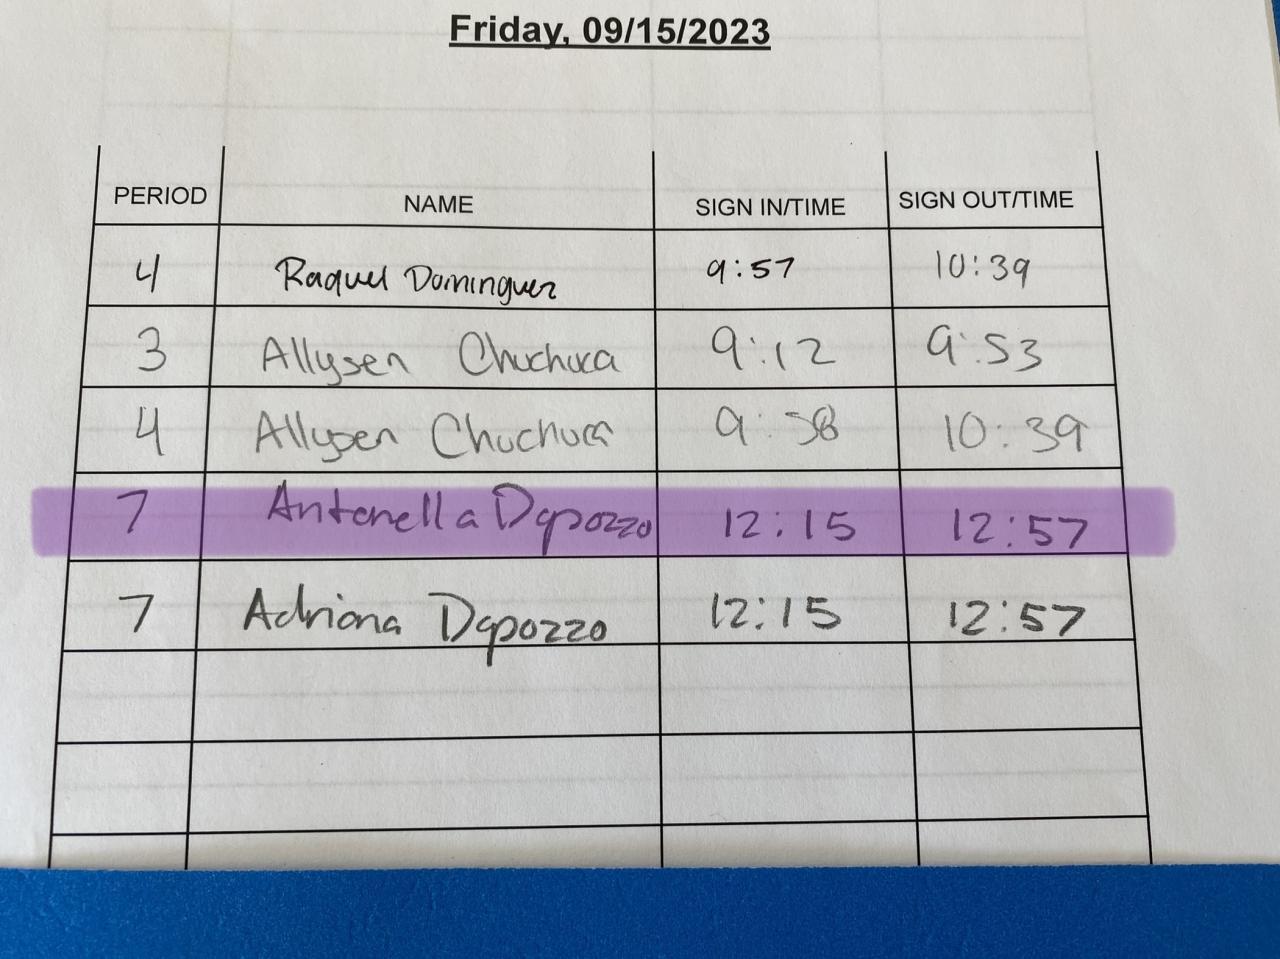 Friday, 09/15/2023
PERIOD NAME SIGN IN/TIME SIGN OUT/TIME
4 Raquel Dominguez 9:57 10:39
3 Allysen Chuchuca 9:12 9:53
4 Allysen Chuchuca 9:58 10:39
7 Antonella Dapozzo 12:15 12:57
7 Adriana Dapozzo 12:15 12:57